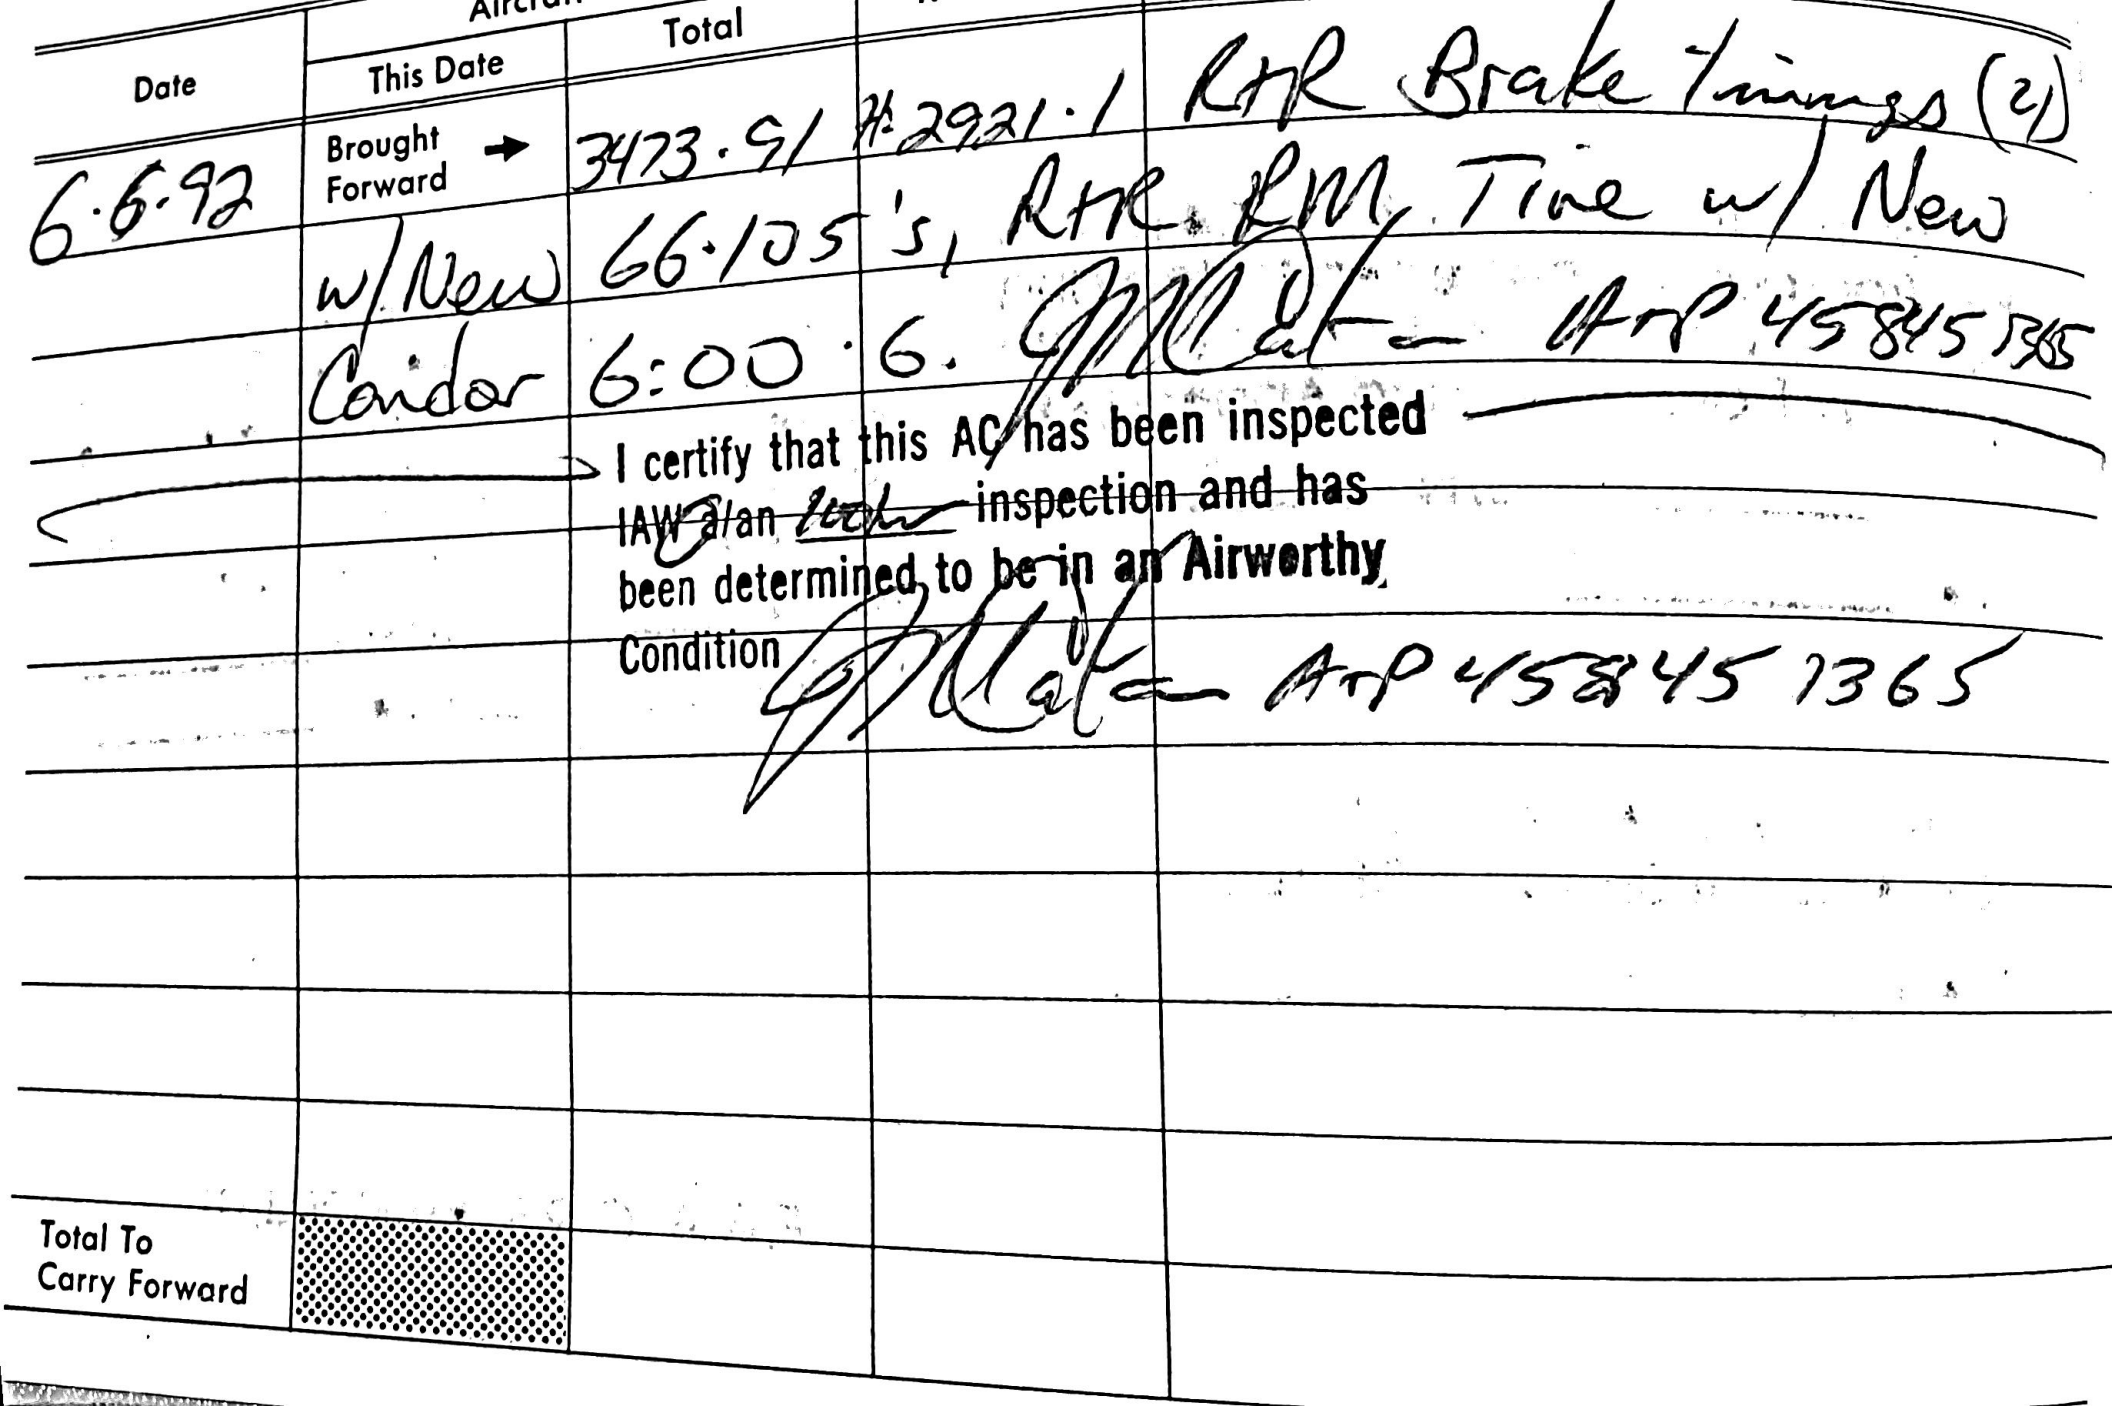 Total
Date
This Date
Brought
Forward
6.6.92 3473.91 H:2921.1 R+R Brake Linings (4)
w/New 66.105's, R+R RM Tire w/ New
Condor 6:00.6. A+P 458451365
I certify that this AC has been inspected
IAW a/an 100hr inspection and has
been determined to be in an Airworthy
Condition A+P 458451365
Total To
Carry Forward